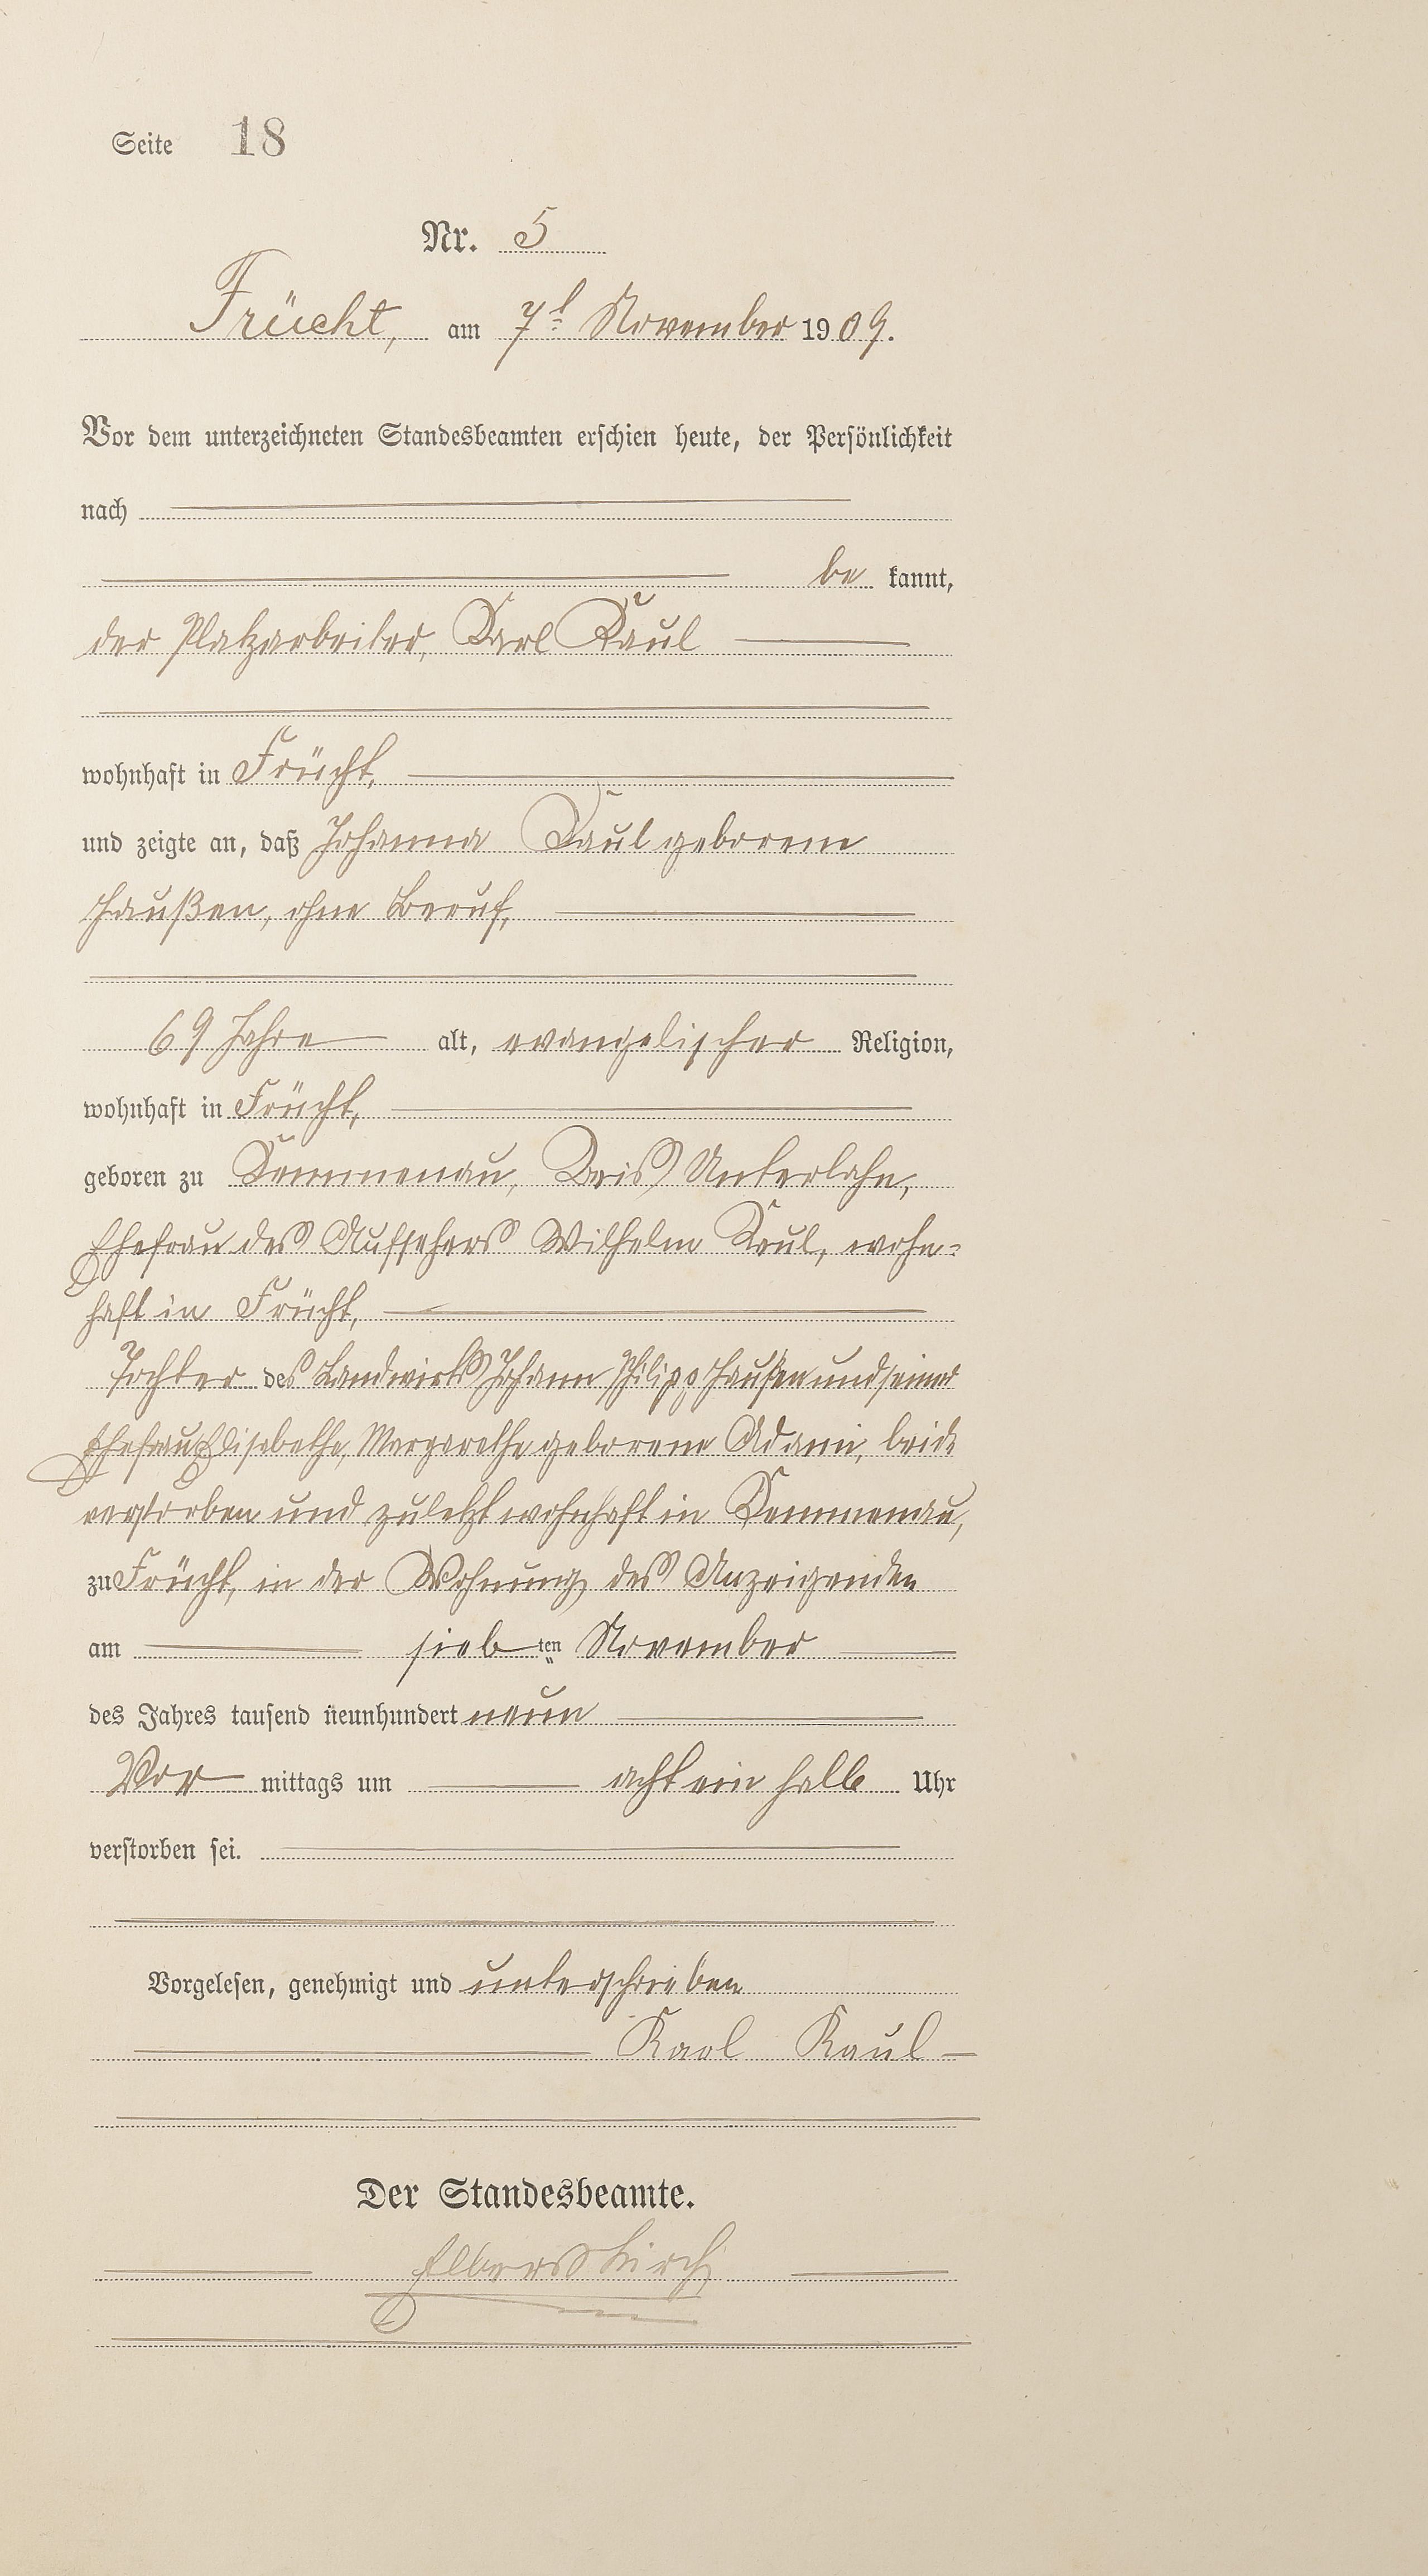 Seite 18
Nr. 5
Frücht, am 7t November 1909.
Vor dem unterzeichneten Standesbeamten erschien heute, der Persönlichkeit
nach
be kannt,
der Platzarbeiter, Karl Kaul
wohnhaft in Frücht,
und zeigte an, daß Johanna Kaul geborene
Haußen, ohne Beruf,
69 Jahre alt, evangelischer Religion,
wohnhaft in Frücht,
geboren zu Kemmenau, Kreis Unterlahn,
Ehefrau des Aufsehers Wilhelm Kaul, wohn-
haft in Frücht,
Tochter des Landwirts Johann Philipp Haußen und seiner
Ehefrau Elisabethe, Margarethe geborene Adami, beide
verstorben und zuletzt wohnhaft in Kemmenau,
zu Frücht, in der Wohnung des Anzeigenden
am sieb ten November
des Jahres tausend neunhundert neun
Vor mittags um acht ein halb Uhr
verstorben sei.
Vorgelesen, genehmigt und unterschrieben
Karl Kaul
Der Standesbeamte.
Elberskirch